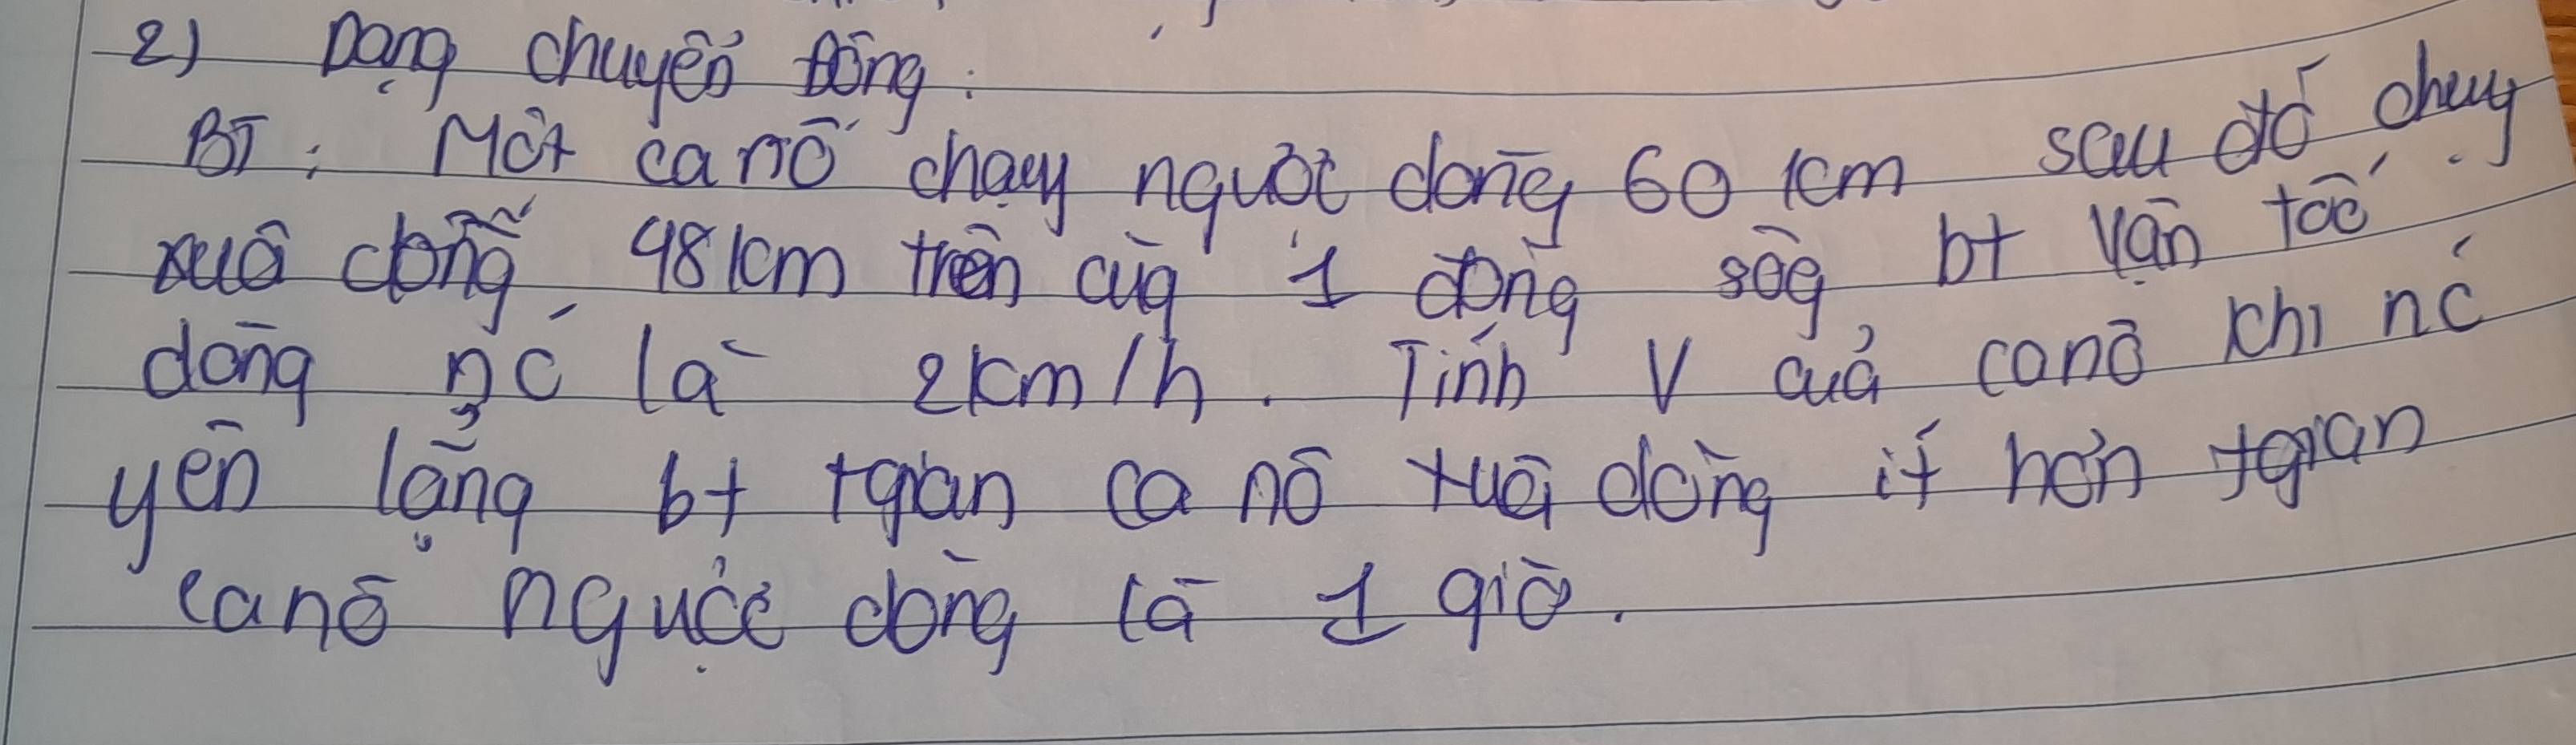 2) Dạng chuyển động:
BT: Một ca nô chạy ngược dòng 60 km sau đó chạy
xuôi dòng 48km trên cùg 1 dòng sôg bt vận tốc
dòng nc là 2km/h. Tính V của canô khi nc
yên lặng bt tgian ca nô xuôi dòng ít hơn tgian
canô ngược dòng là 1 giờ.